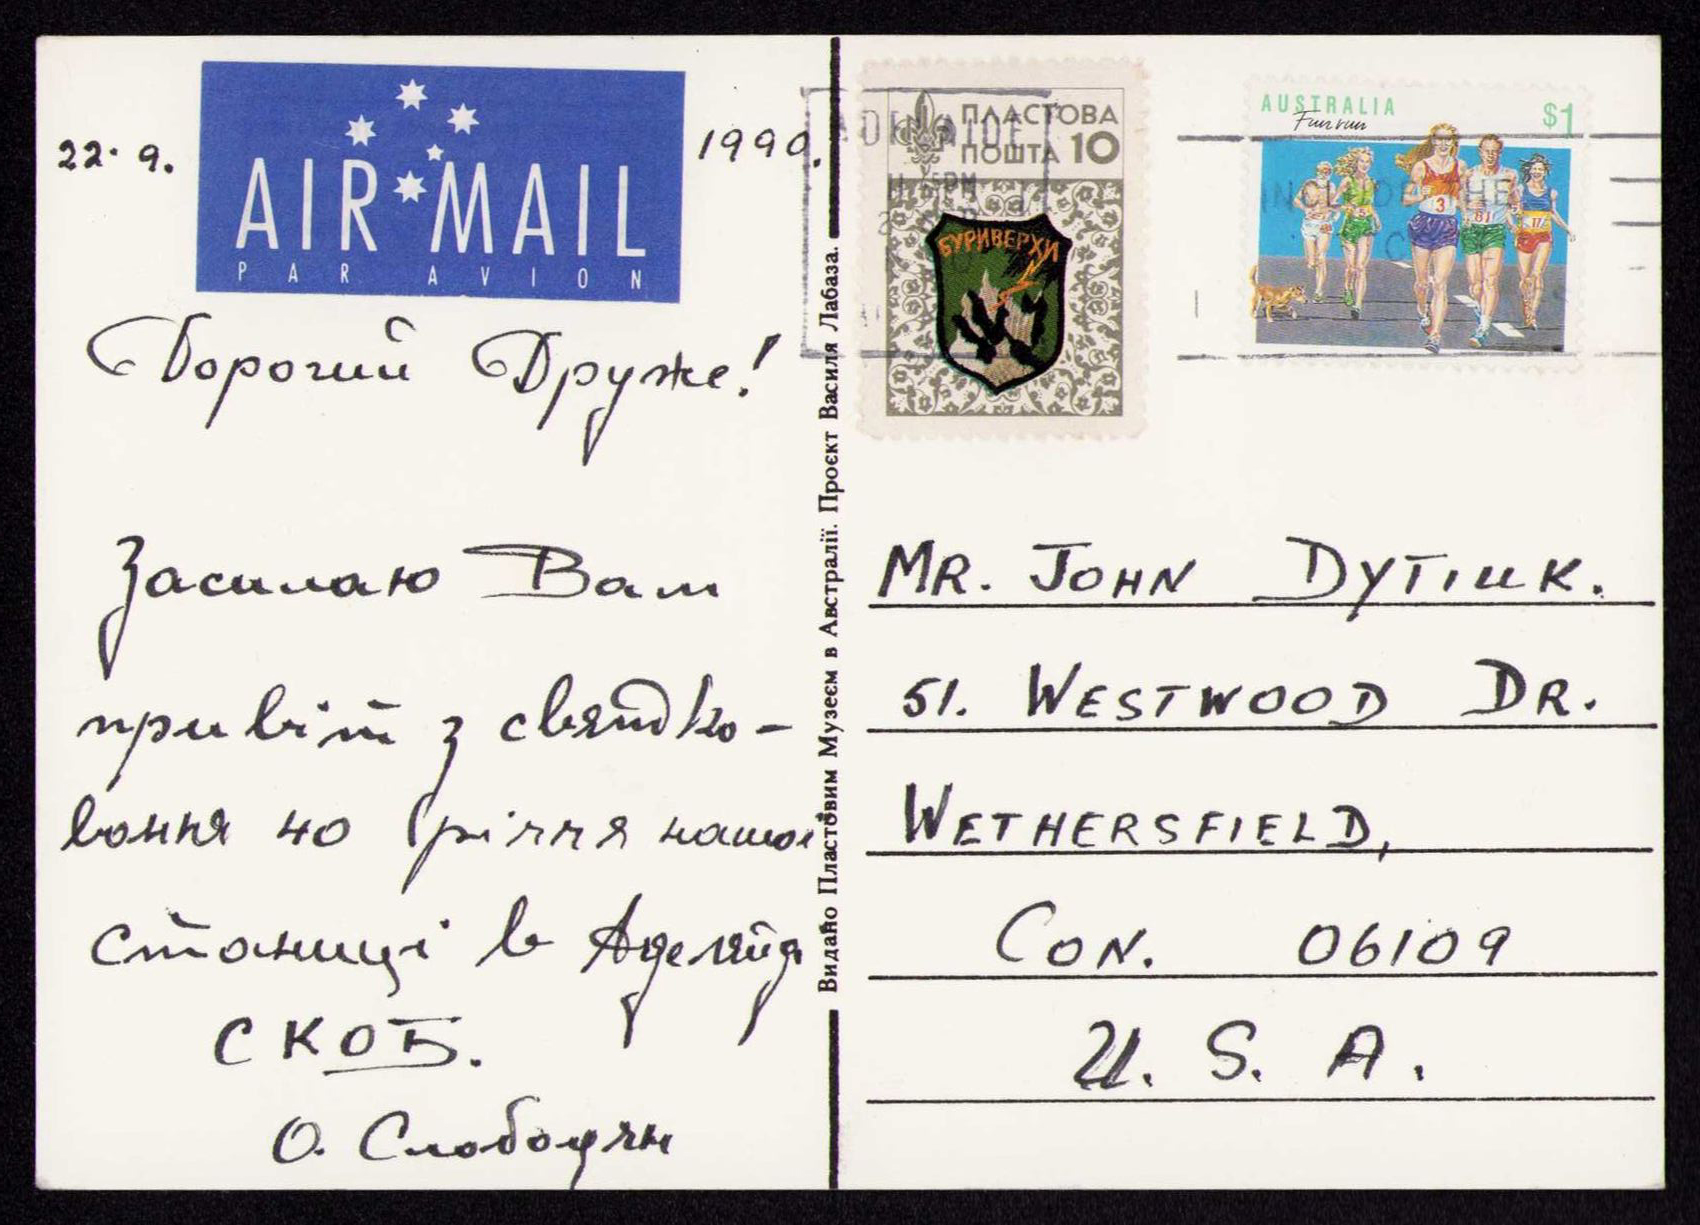 22. 9. 1990.
AIR MAIL
PAR AVION
Дорогий Друже!
Засилаю Вам
привіт з святко-
вання 40 річчя нашої
станиці в Аделяйд
СКОБ.
О. Слободян
Видано Пластовим Музеєм в Австралії. Проєкт Василя Лабаза.
ПЛАСТОВА
ПОШТА 10
БУРИВЕРХИ
ADELAIDE
5PM
AUSTRALIA $1
Fun run
3
61
17
INCLUDE THE
MR. JOHN DYTIUK.
51. WESTWOOD DR.
WETHERSFIELD,
CON. 06109
U. S. A.